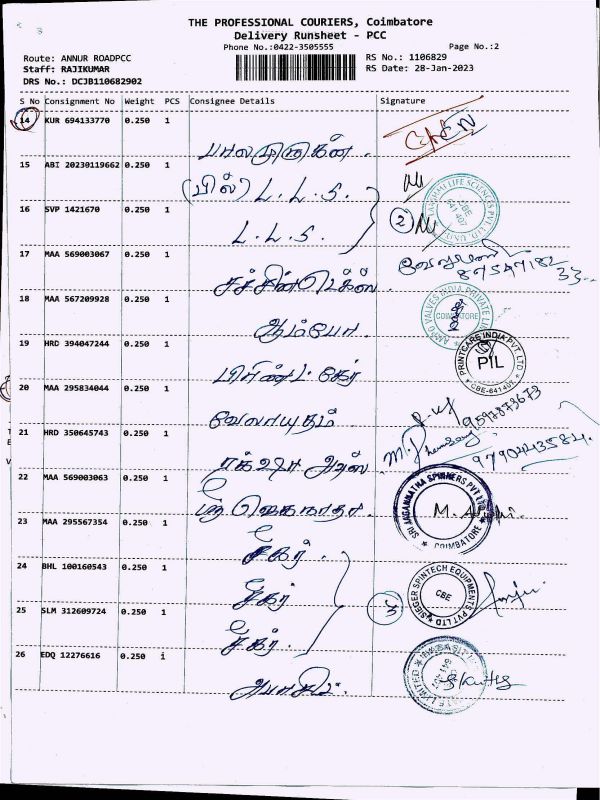 THE PROFESSIONAL COURIERS, Coimbatore
Delivery Runsheet - PCC
Phone No.:0422-3505555
Page No.:2
Route: ANNUR ROADPCC
RS No.: 1106829
Staff: RAJIKUMAR
RS Date: 28-Jan-2023
DRS No.: DCJB110682902
S No Consignment No Weight PCS Consignee Details Signature
14 KUR 694133770 0.250 1
பாலமுருகன்
15 ABI 20230119662 0.250 1
(பில்) L.L.S.
16 SVP 1421670 0.250 1
L.L.S.
2
LIFE SCIENCES PVT LTD
CBE
641 407
17 MAA 569003067 0.250 1
18 MAA 567209928 0.250 1
ஆம்போ.
AMPO VALVES INDIA PRIVATE LIMITED
COIMBATORE
19 HRD 394047244 0.250 1
பிரிண்ட் கேர்
PRINTCARE INDIA PVT. LTD
PIL
CBE-641407
20 MAA 295834044 0.250 1
வேலாயுதம்
9597873673
21 HRD 350645743 0.250 1
9790443584
22 MAA 569003063 0.250 1
ஸ்ரீ ஜெகநாதா
SRI JAGANNATHA SPINNERS PVT LTD
COIMBATORE
23 MAA 295567354 0.250 1
சீகர்
24 BHL 100160543 0.250 1
சீகர்
3
SIEGER SPINTECH EQUIPMENTS PVT LTD
CBE
25 SLM 312609724 0.250 1
சீகர்
26 EDQ 12276616 0.250 1